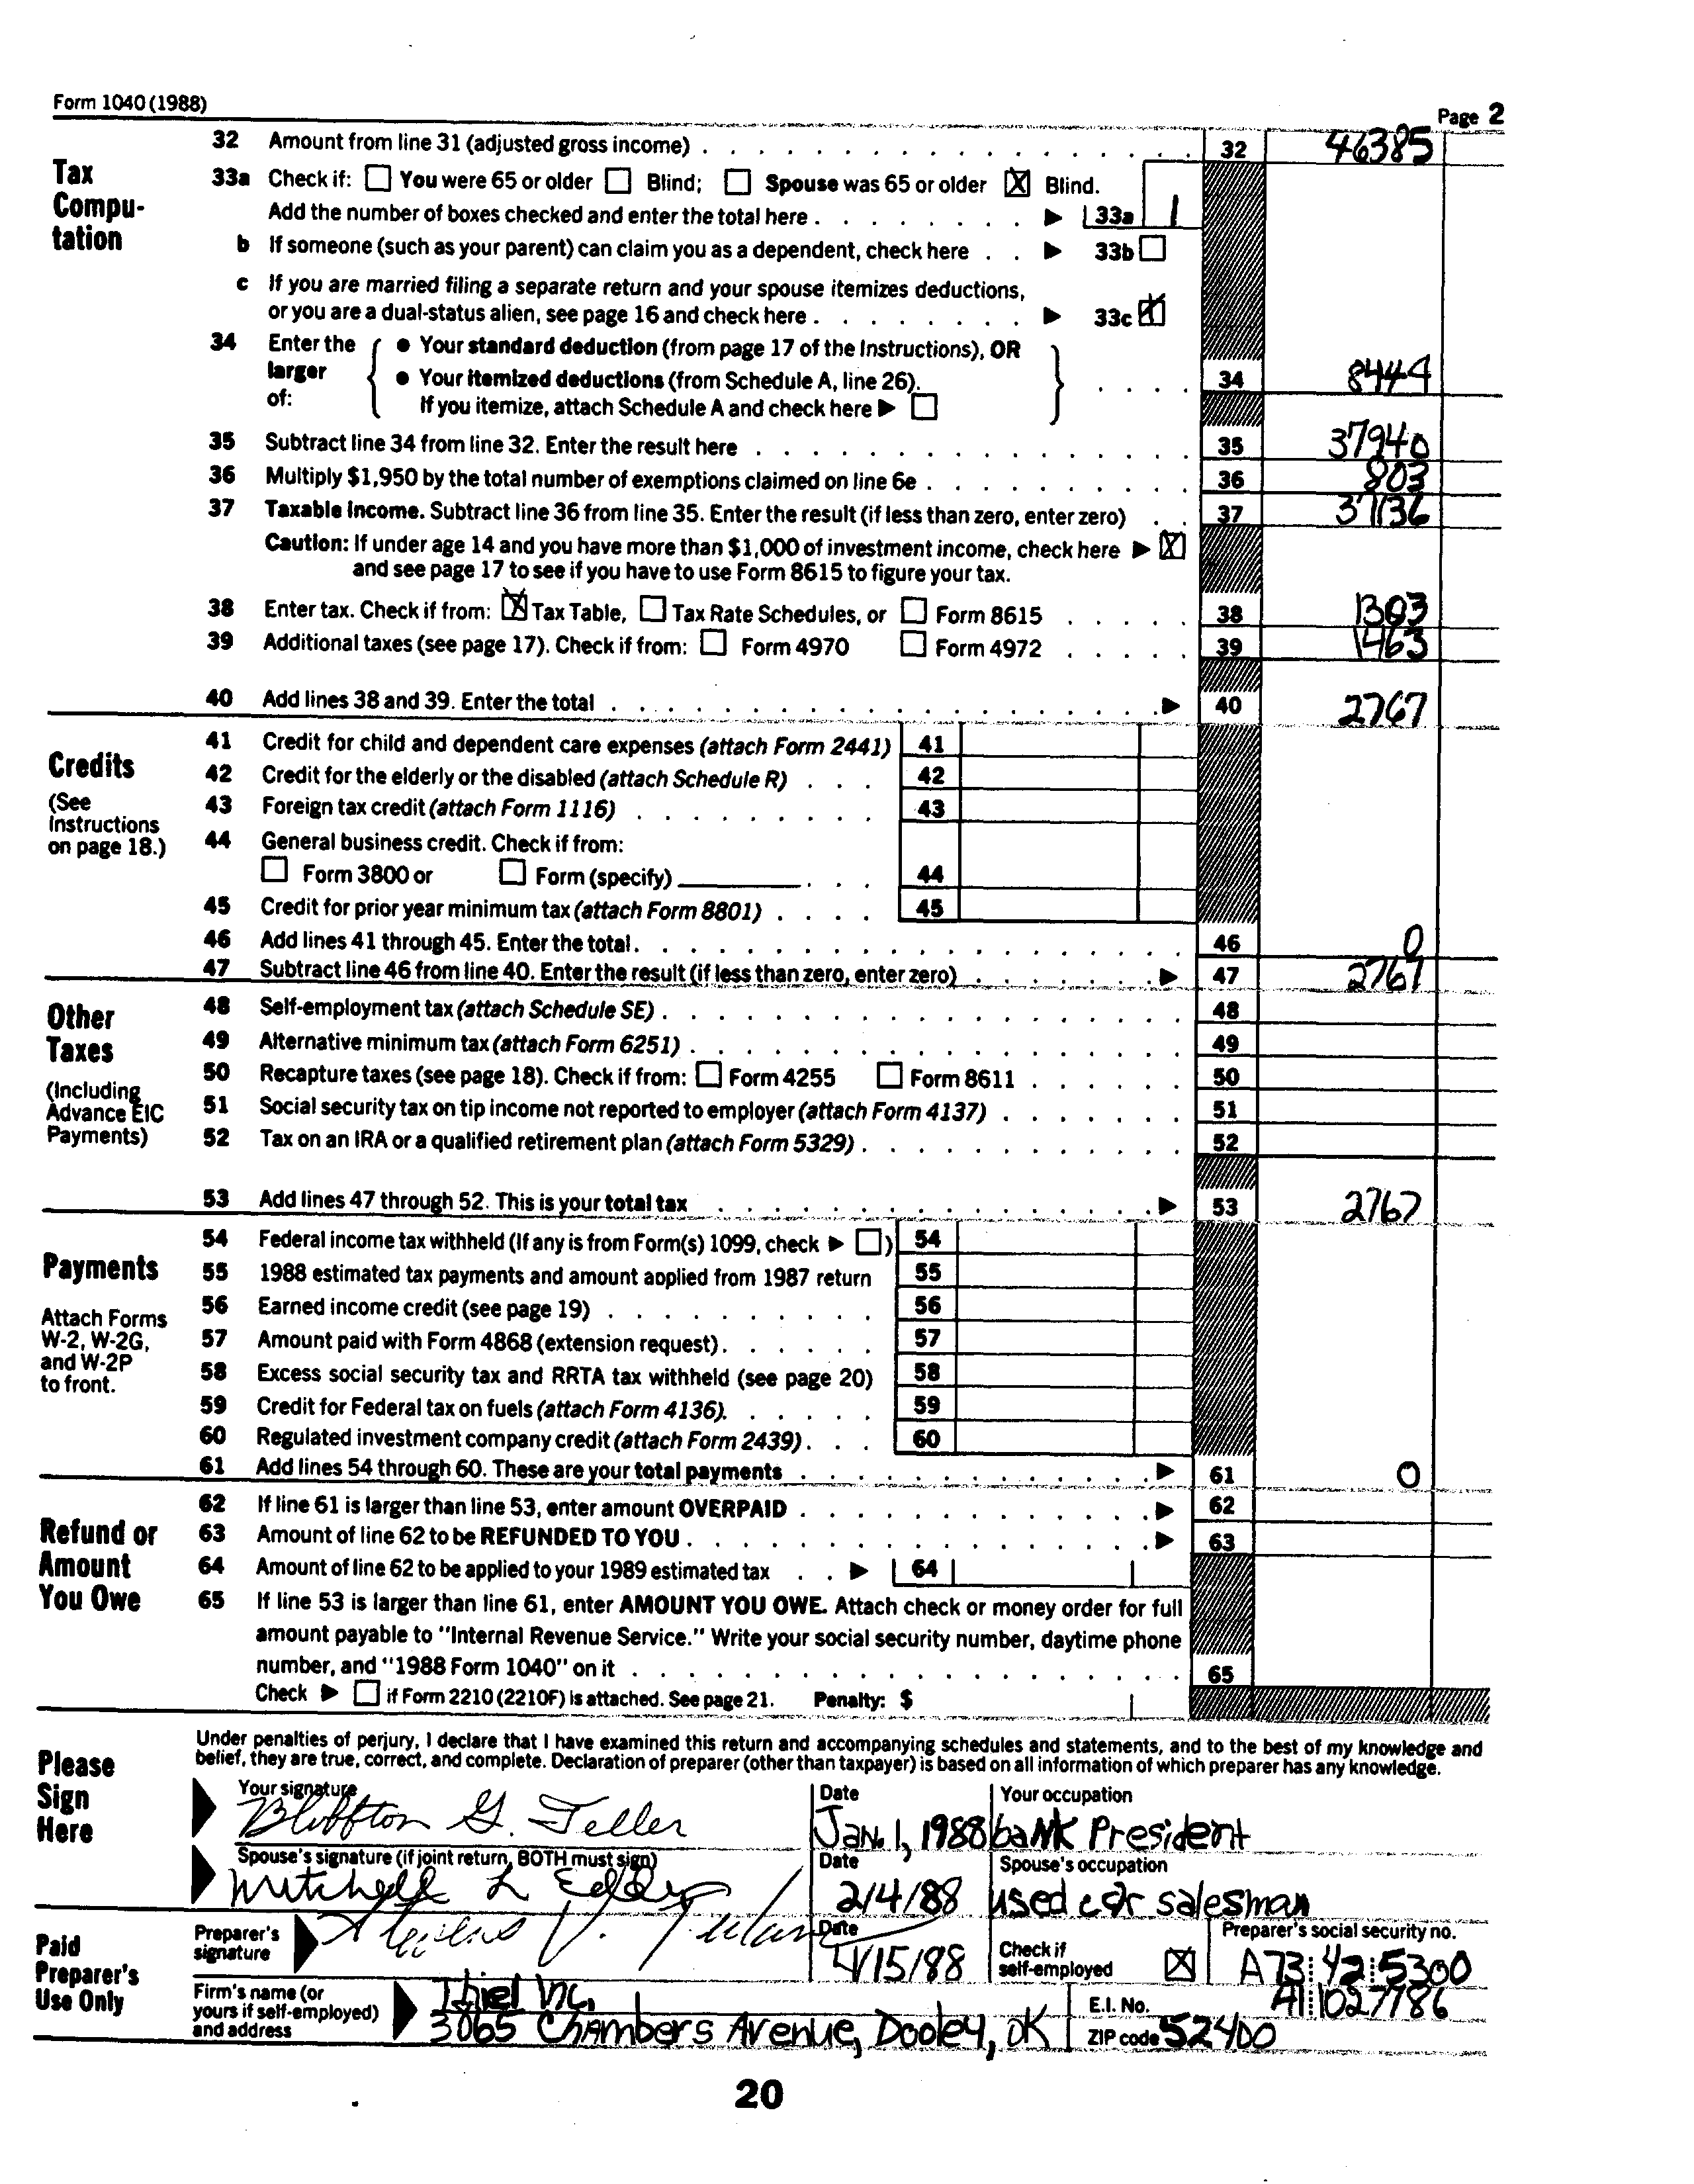 Form 1040 (1988)
Page 2
Tax Compu-
tation
32 Amount from line 31 (adjusted gross income) 32 46385
33a Check if: You were 65 or older Blind; Spouse was 65 or older X Blind.
Add the number of boxes checked and enter the total here 33a 1
b If someone (such as your parent) can claim you as a dependent, check here 33b
c If you are married filing a separate return and your spouse itemizes deductions,
or you are a dual-status alien, see page 16 and check here 33c X
34 Enter the larger of:
• Your standard deduction (from page 17 of the Instructions), OR
• Your itemized deductions (from Schedule A, line 26).
If you itemize, attach Schedule A and check here
34 8444
35 Subtract line 34 from line 32. Enter the result here 35 37940
36 Multiply $1,950 by the total number of exemptions claimed on line 6e 36 803
37 Taxable income. Subtract line 36 from line 35. Enter the result (if less than zero, enter zero) 37 37136
Caution: If under age 14 and you have more than $1,000 of investment income, check here X
and see page 17 to see if you have to use Form 8615 to figure your tax.
38 Enter tax. Check if from: X Tax Table, Tax Rate Schedules, or Form 8615 38 1303
39 Additional taxes (see page 17). Check if from: Form 4970 Form 4972 39 1463
40 Add lines 38 and 39. Enter the total 40 2767
Credits
(See
Instructions
on page 18.)
41 Credit for child and dependent care expenses (attach Form 2441) 41
42 Credit for the elderly or the disabled (attach Schedule R) 42
43 Foreign tax credit (attach Form 1116) 43
44 General business credit. Check if from:
Form 3800 or Form (specify) 44
45 Credit for prior year minimum tax (attach Form 8801) 45
46 Add lines 41 through 45. Enter the total. 46 0
47 Subtract line 46 from line 40. Enter the result (if less than zero, enter zero) 47 2767
Other
Taxes
(Including
Advance EIC
Payments)
48 Self-employment tax (attach Schedule SE) 48
49 Alternative minimum tax (attach Form 6251) 49
50 Recapture taxes (see page 18). Check if from: Form 4255 Form 8611 50
51 Social security tax on tip income not reported to employer (attach Form 4137) 51
52 Tax on an IRA or a qualified retirement plan (attach Form 5329) 52
53 Add lines 47 through 52. This is your total tax 53 2767
Payments
Attach Forms
W-2, W-2G,
and W-2P
to front.
54 Federal income tax withheld (If any is from Form(s) 1099, check ) 54
55 1988 estimated tax payments and amount applied from 1987 return 55
56 Earned income credit (see page 19) 56
57 Amount paid with Form 4868 (extension request) 57
58 Excess social security tax and RRTA tax withheld (see page 20) 58
59 Credit for Federal tax on fuels (attach Form 4136). 59
60 Regulated investment company credit (attach Form 2439) 60
61 Add lines 54 through 60. These are your total payments 61 0
Refund or
Amount
You Owe
62 If line 61 is larger than line 53, enter amount OVERPAID 62
63 Amount of line 62 to be REFUNDED TO YOU 63
64 Amount of line 62 to be applied to your 1989 estimated tax 64
65 If line 53 is larger than line 61, enter AMOUNT YOU OWE. Attach check or money order for full
amount payable to "Internal Revenue Service." Write your social security number, daytime phone
number, and "1988 Form 1040" on it 65
Check if Form 2210 (2210F) is attached. See page 21. Penalty: $
Please
Sign
Here
Under penalties of perjury, I declare that I have examined this return and accompanying schedules and statements, and to the best of my knowledge and
belief, they are true, correct, and complete. Declaration of preparer (other than taxpayer) is based on all information of which preparer has any knowledge.
Your signature Date Your occupation
Bluffton G. Teller Jan. 1, 1988 bank President
Spouse's signature (if joint return, BOTH must sign) Date Spouse's occupation
Mitchell L Eddy 2/4/88 used car salesman
Paid
Preparer's
Use Only
Preparer's
signature
Date
4/15/88
Check if
self-employed X
Preparer's social security no.
A73 42 5300
Firm's name (or
yours if self-employed)
and address
Thiel Inc.
3065 Chambers Avenue, Dooley, OK
E.I. No. A1 1027786
ZIP code 52400
20